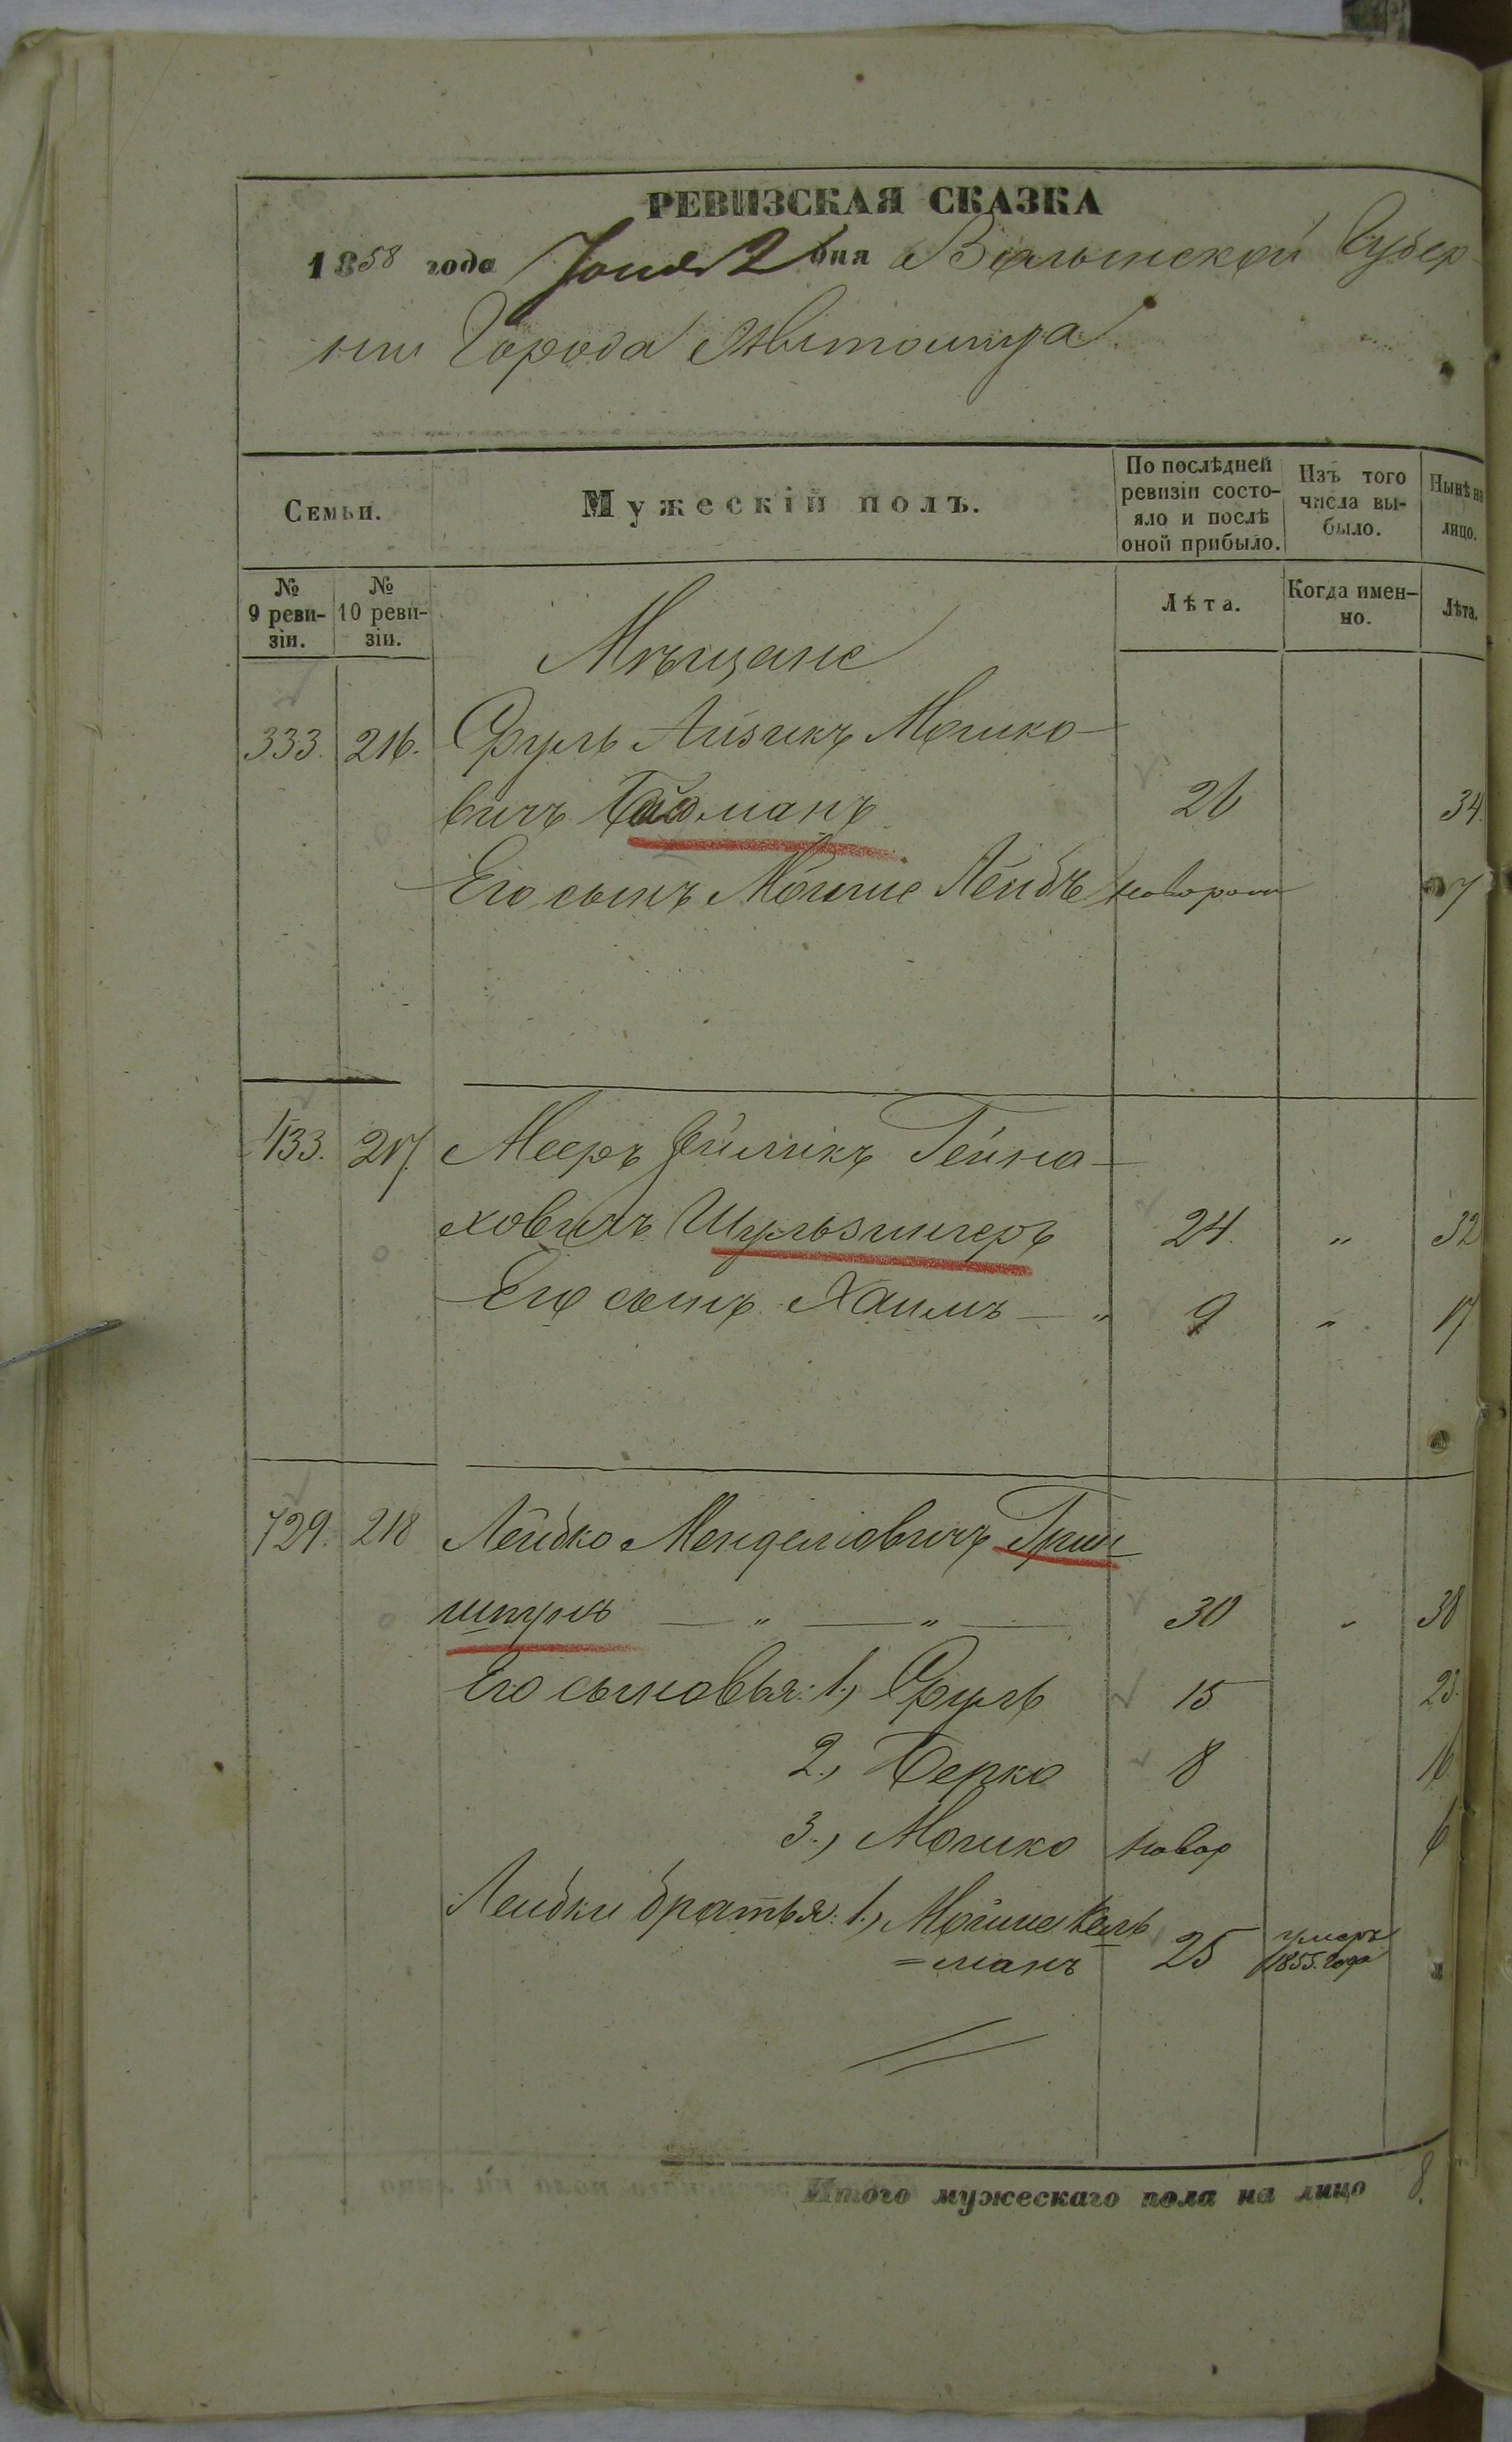 РЕВИЗСКАЯ СКАЗКА
1858 года Іюня 2 дня Волынской Губер
ніи Города Житомира
Семьи.
Мужескій полъ.
По послѣдней ревизіи состо-
яло и послѣ
оной прибыло.
Изъ того
числа вы-
было.
Нынѣ на
лицо.
№
9 реви-
зіи.
№
10 реви-
зіи.
Лѣта.
Когда имен-
но.
Лѣта.
Мѣщане
333. 216. Сруль Айзикъ Мошко-
вичъ 26 34.
Его сынъ Мошие Лейбъ новорож 7
433. 217. Мееръ Зейликъ Гейна-
ховичъ Шульзингеръ 24. " 32
Его сынъ Хаимъ — " 9 " 17
729. 218 Лейбко Менделіовичъ Грин
шпунъ — " — " — 30 " 38
Его сыновья: 1., Сруль 15 23.
2., Берко 8 16
3., Мошко новор 6
Лейбки братья: 1., Мойше Каль
=манъ 25 умеръ
1855. года
Итого мужескаго пола на лицо 8.